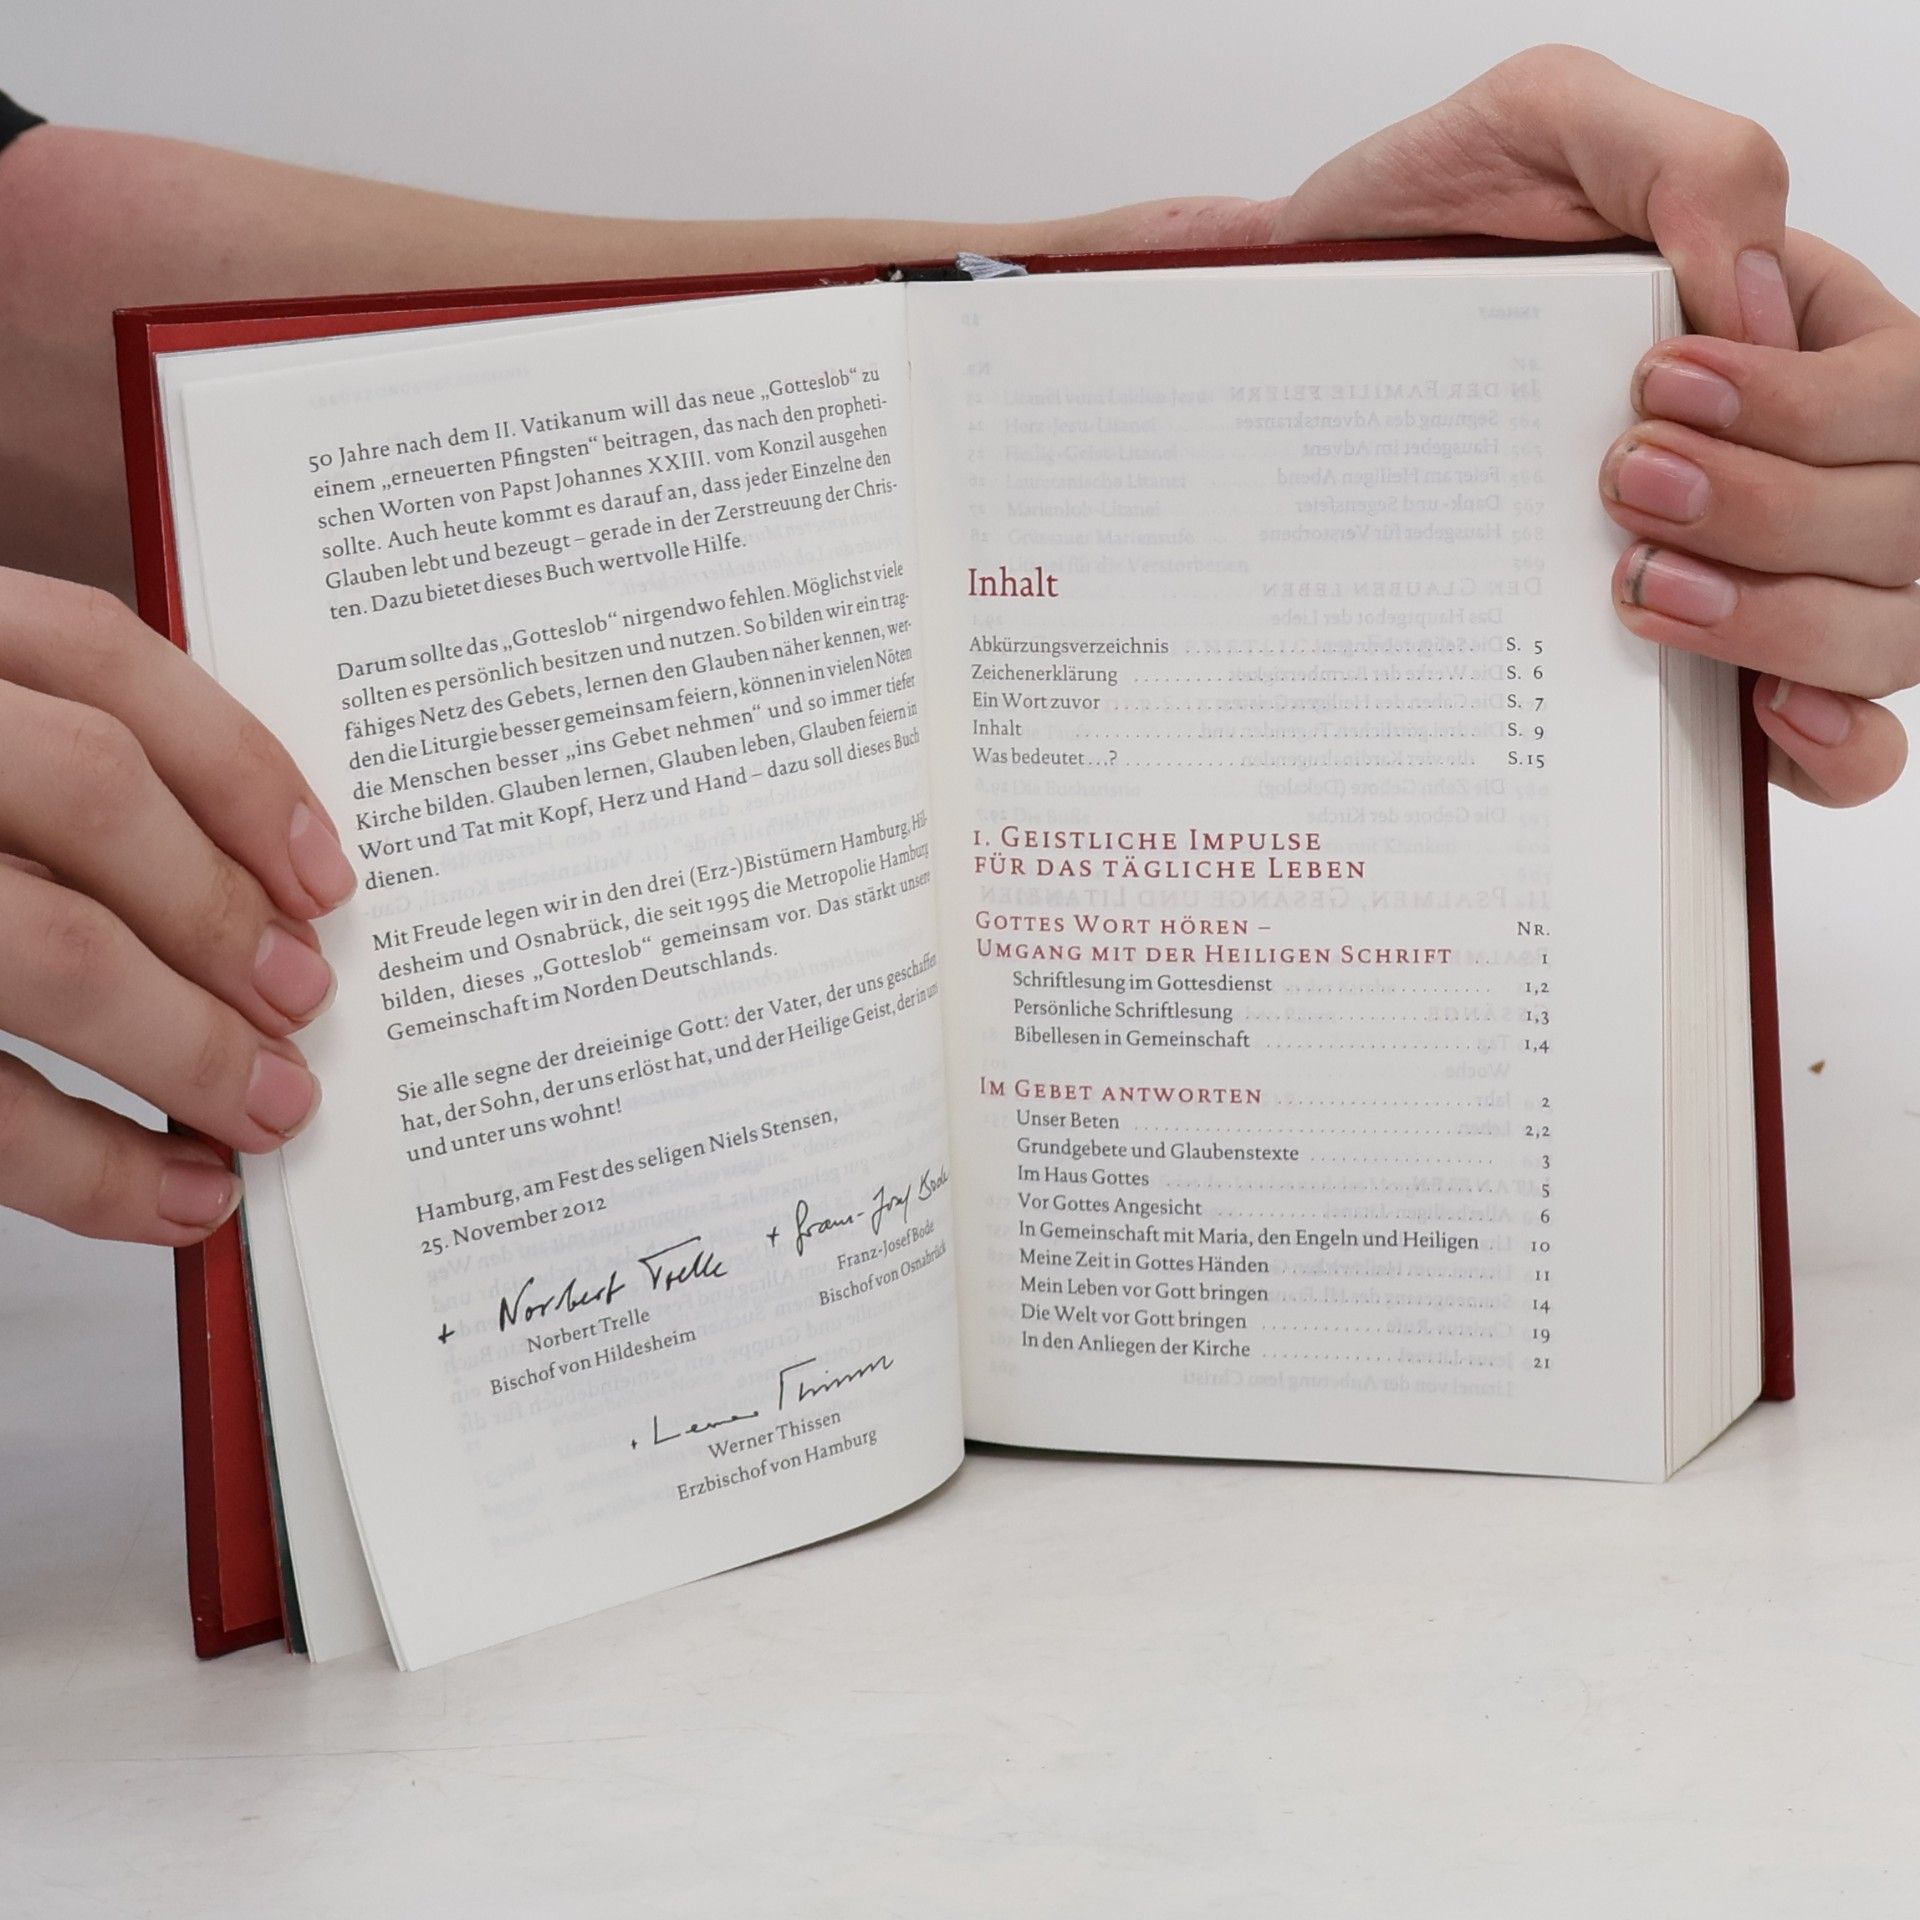 50 Jahre nach dem II. Vatikanum will das neue „Gotteslob“ zu
einem „erneuerten Pfingsten“ beitragen, das nach den propheti-
schen Worten von Papst Johannes XXIII. vom Konzil ausgehen
sollte. Auch heute kommt es darauf an, dass jeder Einzelne den
Glauben lebt und bezeugt – gerade in der Zerstreuung der Chris-
ten. Dazu bietet dieses Buch wertvolle Hilfe.
Darum sollte das „Gotteslob“ nirgendwo fehlen. Möglichst viele
sollten es persönlich besitzen und nutzen. So bilden wir ein trag-
fähiges Netz des Gebets, lernen den Glauben näher kennen, wer-
den die Liturgie besser gemeinsam feiern, können in vielen Nöten
die Menschen besser „ins Gebet nehmen“ und so immer tiefer
Kirche bilden. Glauben lernen, Glauben leben, Glauben feiern in
Wort und Tat mit Kopf, Herz und Hand – dazu soll dieses Buch
dienen.
Mit Freude legen wir in den drei (Erz-)Bistümern Hamburg, Hil-
desheim und Osnabrück, die seit 1995 die Metropolie Hamburg
bilden, dieses „Gotteslob“ gemeinsam vor. Das stärkt unsere
Gemeinschaft im Norden Deutschlands.
Sie alle segne der dreieinige Gott: der Vater, der uns geschaffen
hat, der Sohn, der uns erlöst hat, und der Heilige Geist, der in uns
und unter uns wohnt!
Hamburg, am Fest des seligen Niels Stensen,
25. November 2012
+ Norbert Trelle
Norbert Trelle
Bischof von Hildesheim
+ Franz-Josef Bode
Franz-Josef Bode
Bischof von Osnabrück
+ Werner Thissen
Werner Thissen
Erzbischof von Hamburg
Inhalt
Abkürzungsverzeichnis S. 5
Zeichenerklärung S. 6
Ein Wort zuvor S. 7
Inhalt S. 9
Was bedeutet ...? S. 15
1. GEISTLICHE IMPULSE
FÜR DAS TÄGLICHE LEBEN
GOTTES WORT HÖREN – NR.
UMGANG MIT DER HEILIGEN SCHRIFT 1
Schriftlesung im Gottesdienst 1,2
Persönliche Schriftlesung 1,3
Bibellesen in Gemeinschaft 1,4
IM GEBET ANTWORTEN 2
Unser Beten 2,2
Grundgebete und Glaubenstexte 3
Im Haus Gottes 5
Vor Gottes Angesicht 6
In Gemeinschaft mit Maria, den Engeln und Heiligen 10
Meine Zeit in Gottes Händen 11
Mein Leben vor Gott bringen 14
Die Welt vor Gott bringen 19
In den Anliegen der Kirche 21